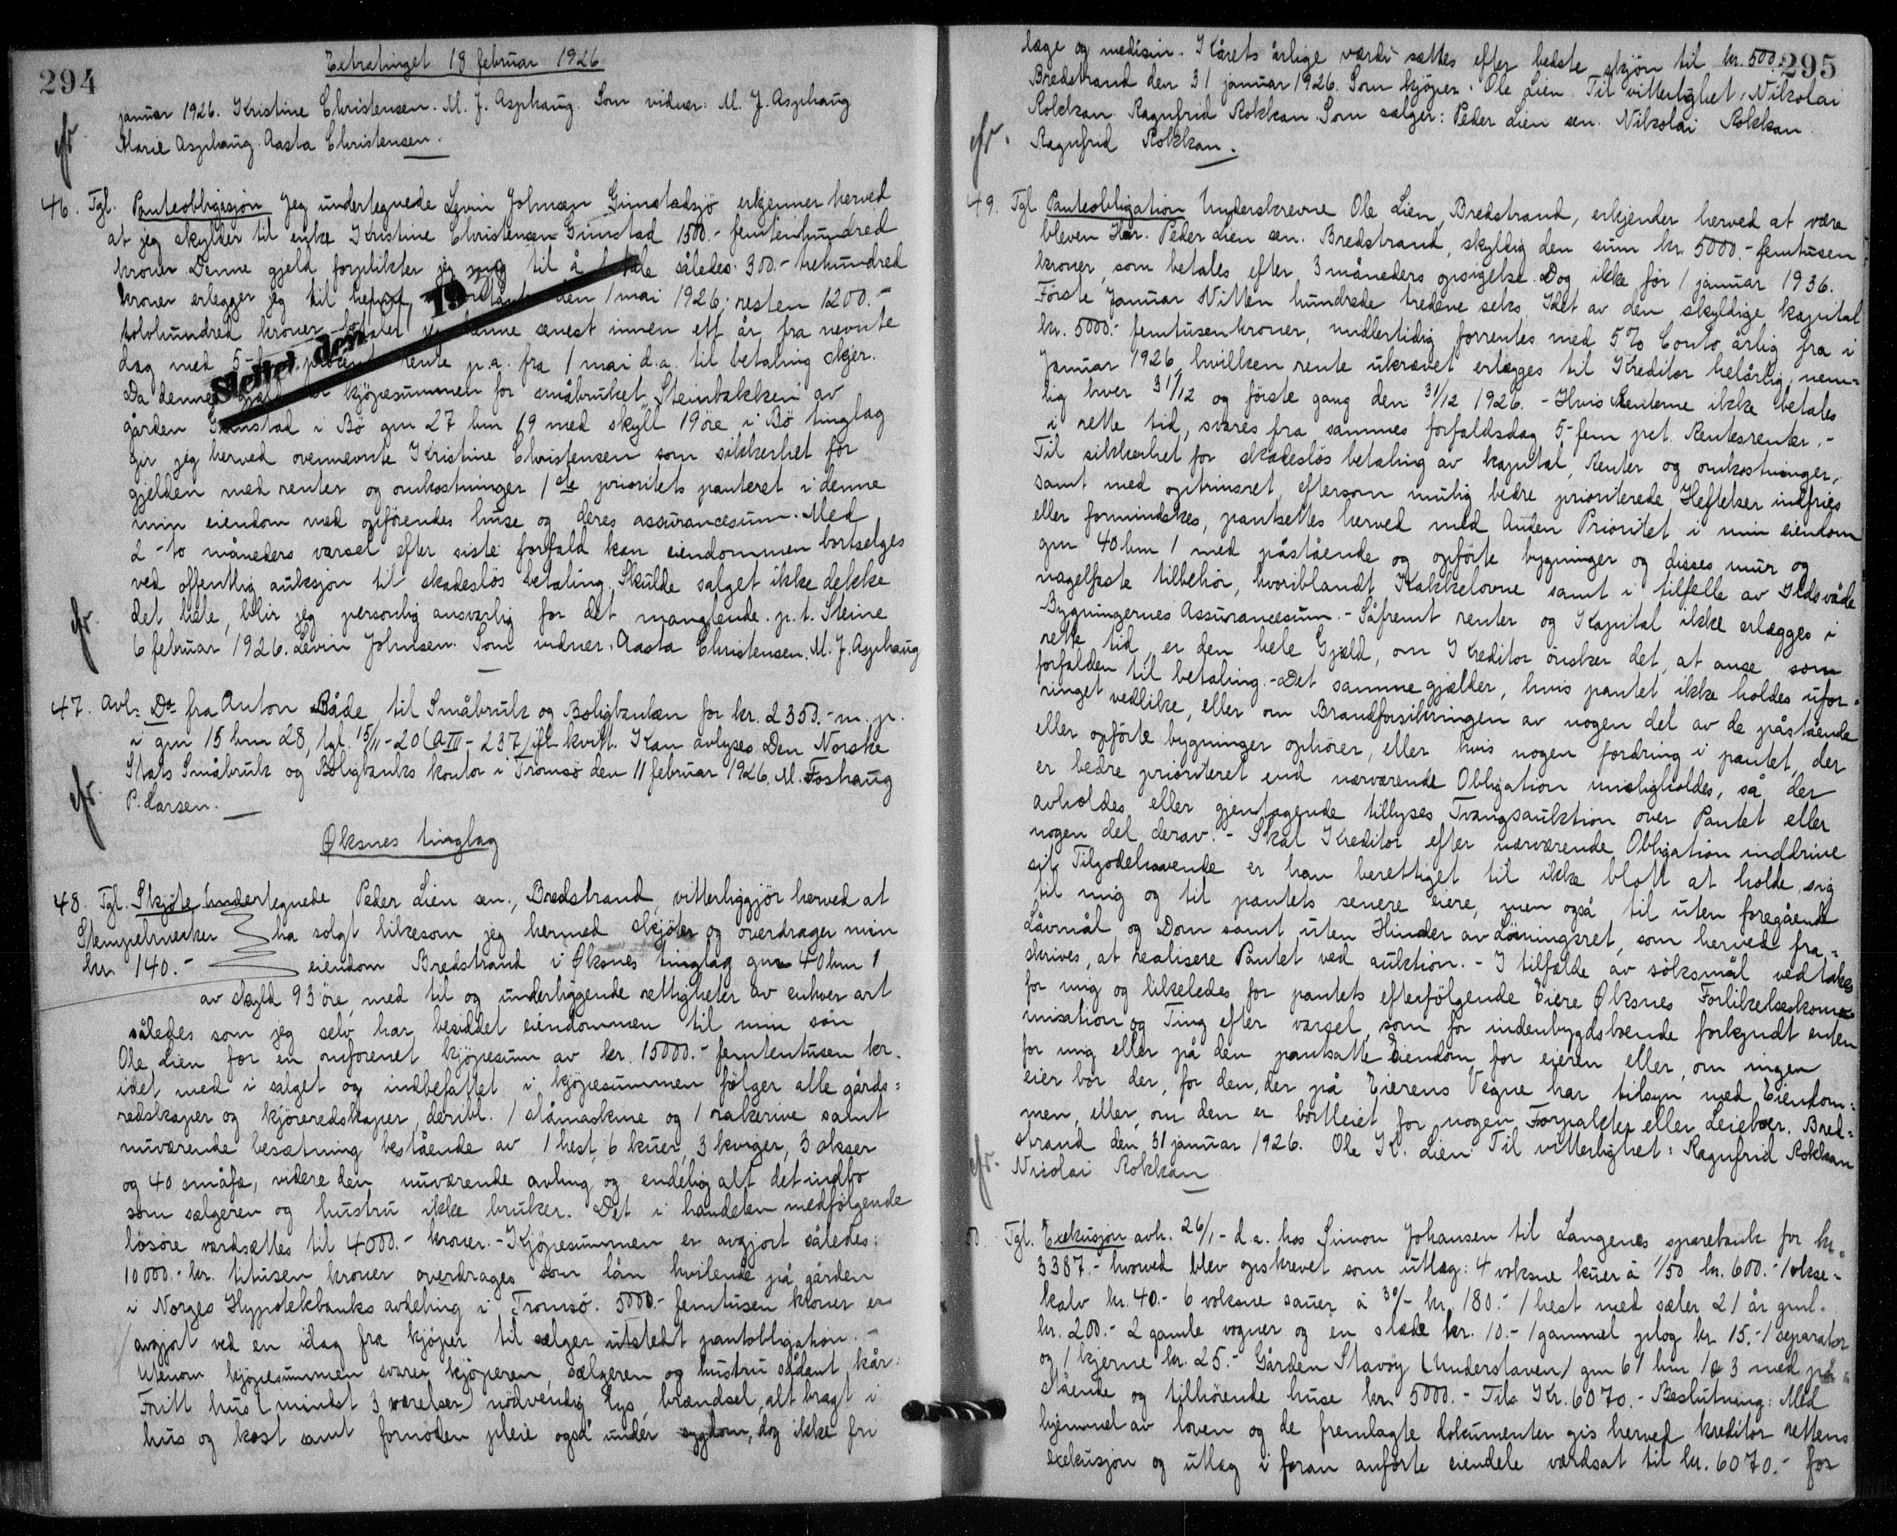 294
Extratinget 18 februar 1926
januar 1926. Kristine Christensen. M. J. Asphaug. Som vidner: M. J. Asphaug
Marie Asphaug. Aasta Christensen.
46. Tgl. Panteobligasjon Jeg undertegnede Levin Johnsen Grimstadsjö erkjenner herved
at jeg skylder til enke Kristine Christensen Grimstad 1500.- femtenhundred
kroner Denne gjeld forplikter jeg mig til å betale således: 300.- trehundred
kroner erlegger jeg til den 1 mai 1926, resten 1200.-
tolvhundred kroner senest innen ett år fra nevnte
dag med 5- rente p.a. fra 1 mai d.a. til betaling skjer.
Da denne kjöpesummen for småbruket Steinbakken av
gården Grimstad i Bö gnr 27 bnr 19 med skyll 19 öre i Bö tinglag
gir jeg herved ovennevnte Kristine Christensen som sikkerhet for
gjelden med renter og omkostninger 1ste prioritets panteret i denne
min eiendom med opförendes huse og deres assurancesum. Med
2 - to måneders varsel efter siste forfald kan eiendommen bortselges
ved offentlig auksjon til skadeslös betaling. Skulde salget ikke dekke
det hele, blir jeg personlig ansvarlig for det manglende. p.t. Steine
6 februar 1926. Levin Johnsen. Som vidner: Aasta Christensen. M. J. Asphaug
Slettet den 19
47. Avl: Do fra Anton Råde til Småbruk og Boligbanken for kr. 2350.- m. p.
i gnr 15 bnr 28, tgl. 15/11-20 (A III - 237) ifl. kvitt. Kan avlyses. Den Norske
Stats Småbruk og Boligbanks kontor i Tromsö den 11 februar 1926. M. Foshaug
P. Larsen.
Øksnes tinglag
48. Tgl. Skjöte Undertegnede Peder Lien sen., Bredstrand, vitterliggjör herved at
Stempelmerker ha solgt likesom jeg hermed skjöter og overdrager min
kr 140.- eiendom Bredstrand i Øksnes tinglag gnr 40 bnr 1
av skyld 93 öre, med til og underliggende rettigheter av enhver art
således som jeg selv har besiddet eiendommen til min sön
Ole Lien for en omforenet kjöpesum av kr. 15000.- femtentusen kr.
idet med i salget og indbefattet i kjöpesummen fölger alle gårds=
redskaper og kjöreredskaper, deribl. 1 slåmaskine og 1 rakerive samt
nuværende besætning bestående av 1 hest, 6 kuer, 3 kviger, 3 okser
og 40 småfæ, videre den nuværende avling og endelig alt det indbo
som sælgeren og hustru ikke bruker. Det i handelen medfölgende
lösöre værdsættes til 4000.- kroner. - Kjöpesummen er avgjort således:
10000.- kr. titusen kroner overdrages som lån hvilende på gården
i Norges Hypotekbanks avdeling i Tromsö. 5000.- femtusen kroner er
avgjort ved en idag fra kjöper til sælger utstedt pantobligation. -
Utenom kjöpesummen svarer kjöperen, sælgeren og hustru sådant kår:
Fritt hus (mindst 3 værelser) nödvendig lys, brændsel, alt bragt i
hus og kost samt fornöden pleie også under sygdom, dog ikke fri
295
læge og medisin. Kårets årlige værdi sættes efter bedste skjön til kr. 500.
Bredstrand den 31 januar 1926. Som kjöper: Ole Lien. Til vitterlighet: Nikolai
Rokkan Ragnfrid Rokkan. Som sælger: Peder Lien sen. Nikolai Rokkan
Ragnfrid Rokkan.
49. Tgl Panteobligation Underskrevne Ole Lien, Bredstrand, erkjender herved at være
bleven Hr. Peder Lien sen. Bredstrand, skyldig den sum kr. 5000.- femtusen
kroner, som betales efter 3 måneders opsigelse. Dog ikke för 1 januar 1936.
Förste Januar Nitten hundrede tredeve seks. Idet av den skyldige kapital
kr. 5000.- femtusenkroner, midlertidig forrentes med 5% Conto årlig fra i
Januar 1926, hvilken rente ukrævet erlægges til Kreditor helårlig, nem=
lig hver 31/12 og förste gang den 31/12 1926. - Hvis Renterne ikke betales
i rette tid, svares fra sammes forfaldsdag 5- fem pct. Rentesrenter. -
Til sikkerhet for skadeslös betaling av kapital, Renter og omkostninger,
samt med optrinsret, eftersom mulig bedre prioriterede Heftelser indfries
eller formindskes, pantsettes herved med Anden Prioritet i min eiendom
gnr 40 bnr 1 med påstående og opförte bygninger og disses mur og
nagelfaste tilbehör, hvoriblandt Kakkelovne samt i tilfelle av Ildsvåde
Bygningernes Assurancesum. - Såfremt renter og Kapital ikke erlægges i
rette tid, er den hele Gjæld, om Kreditor önsker det, at anse som
forfalden til betaling. - Det samme gjælder, hvis pantet ikke holdes ufor=
ringet vedlike, eller om Brandforsikringen av nogen del av de påstående
eller opförte bygninger ophörer, eller hvis nogen fordring i pantet, der
er bedre prioriteret end nærværende Obligation misligholdes, så der
avholdes eller gjentagende tillyses Tvangsauktion over Pantet eller
nogen del derav. - Skal Kreditor efter nærværende Obligation inddrive
sit Tilgodehavende er han berettiget til ikke blott at holde sig
til mig og til pantets senere eiere, men også til uten foregående
Lövmål og Dom samt uten Hinder av Løsningsret, som herved fra=
skrives, at realisere Pantet ved auktion. - I tilfælde av söksmål vedtakes
for mig og likeledes for pantets efterfölgende Eiere Øksnes Forlikelseskom=
misation og Ting efter varsel, som for indenbygdsboende forkyndt enten
for mig eller på den pantsatte Eiendom for eieren eller, om ingen
eier bor der, for den, der på Eierens Vegne har tilsyn med Eiendom=
men, eller, om den er bortleiet for nogen Forpakter eller Leieboer. Bred=
strand den 31 januar 1926. Ole K. Lien. Til vitterlighet: Ragnfrid Rokkan
Nicolai Rokkan
Tgl. Exekusjon avh. 26/1- d.a. hos Simon Johansen til Langenes sparebank for kr.
3387.- hvorved blev opskrevet som utlæg: 4 voksne kuer à 150 kr. 600.- 1 okse-
kalv kr. 40.- 6 voksne sauer à 30/- kr. 180.- 1 hest med sæler 21 år gml.
kr. 200.- 2 gamle vogner og en slæde kr. 10.- 1 gammel plog kr. 15.- 1 separator
og 1 kjerne kr. 25.- Gården Stavöy (Understaven) gnr 61 bnr 1 & 3 med på=
stående og tilhörende huse kr. 5000.- Tils. Kr. 6070.- Beslutning: Med
hjemmel av loven og de fremlagte dokumenter gis herved kreditor rettens
exekusjon og utlæg i foran anförte eiendele værdsat til kr. 6070.- for